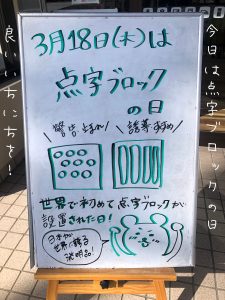 今日は点字ブロックの日
3月18日(木)は
点字ブロック
の日
警告 止まれ!
誘導 すすめ
世界で初めて点字ブロックが
設置された日!
日本が
世界に誇る
発明品!
良いいちにちを!